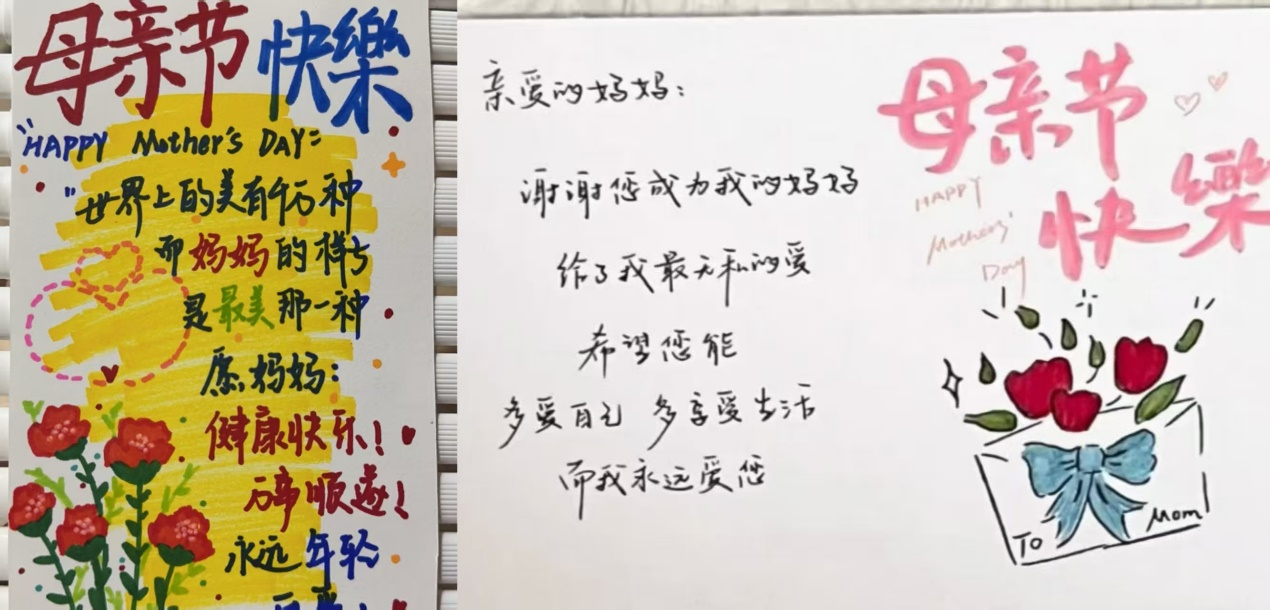 母亲节快樂
"HAPPY Mother's DAY:
"世界上的美有千万种
而妈妈的样子
是最美那一种
愿妈妈:
健康快乐!
万事顺遂!
永远年轻
亲爱的妈妈:
谢谢您成为我的妈妈
给了我最无私的爱
希望您能
多爱自己 多享受生活
而我永远爱您
母亲节
快樂
HAPPY
Mothers'
Day
To Mom